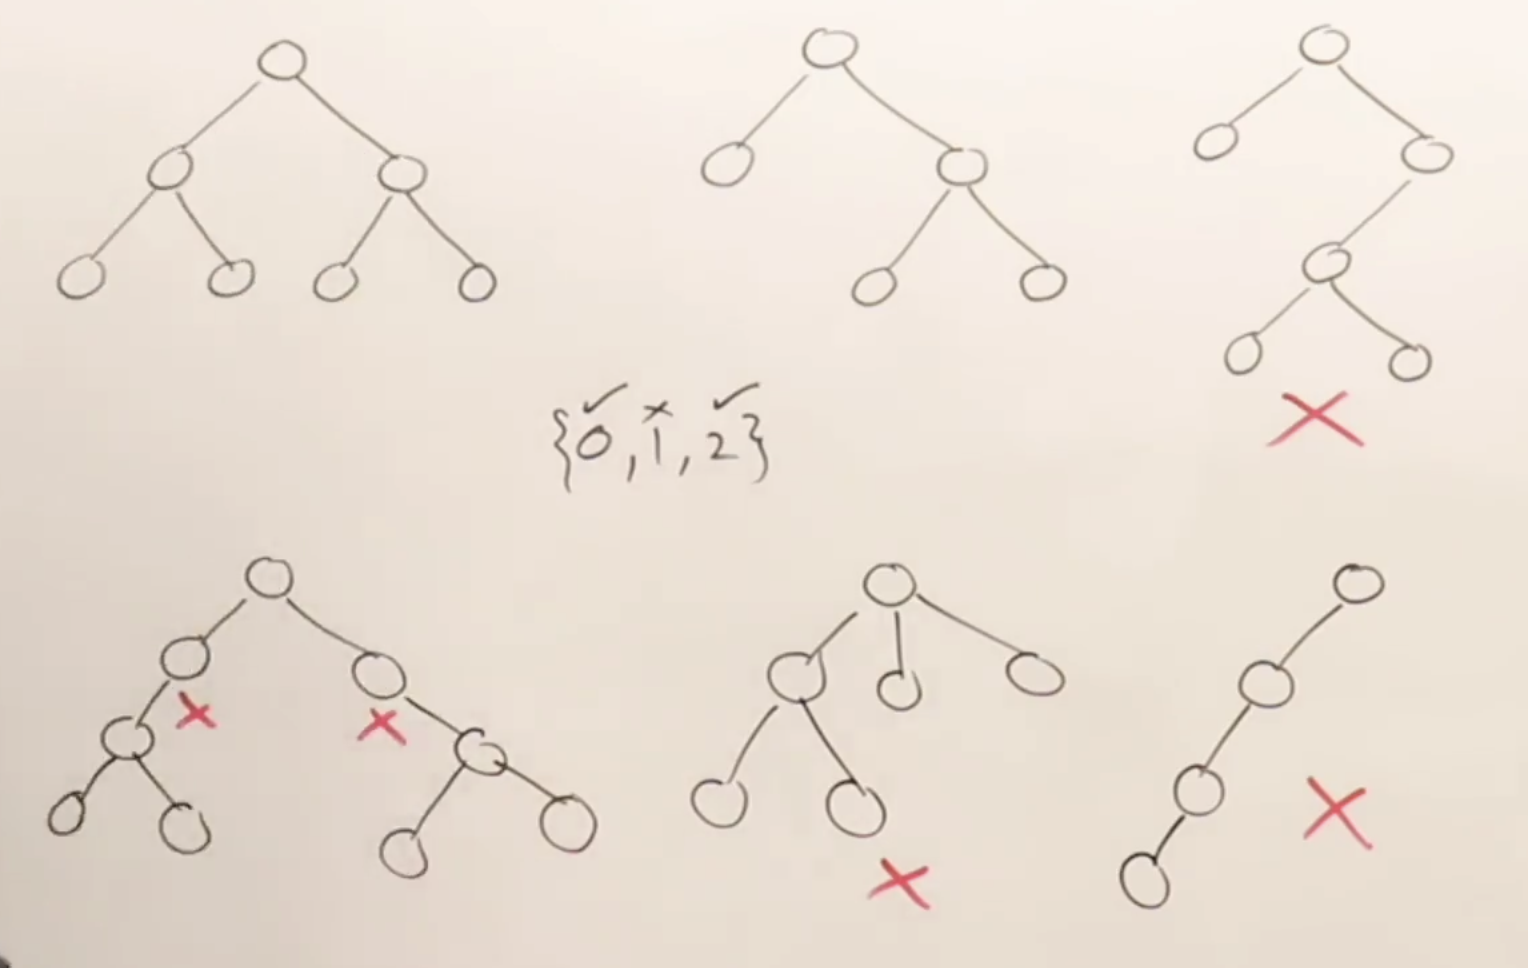 {0, 1, 2}